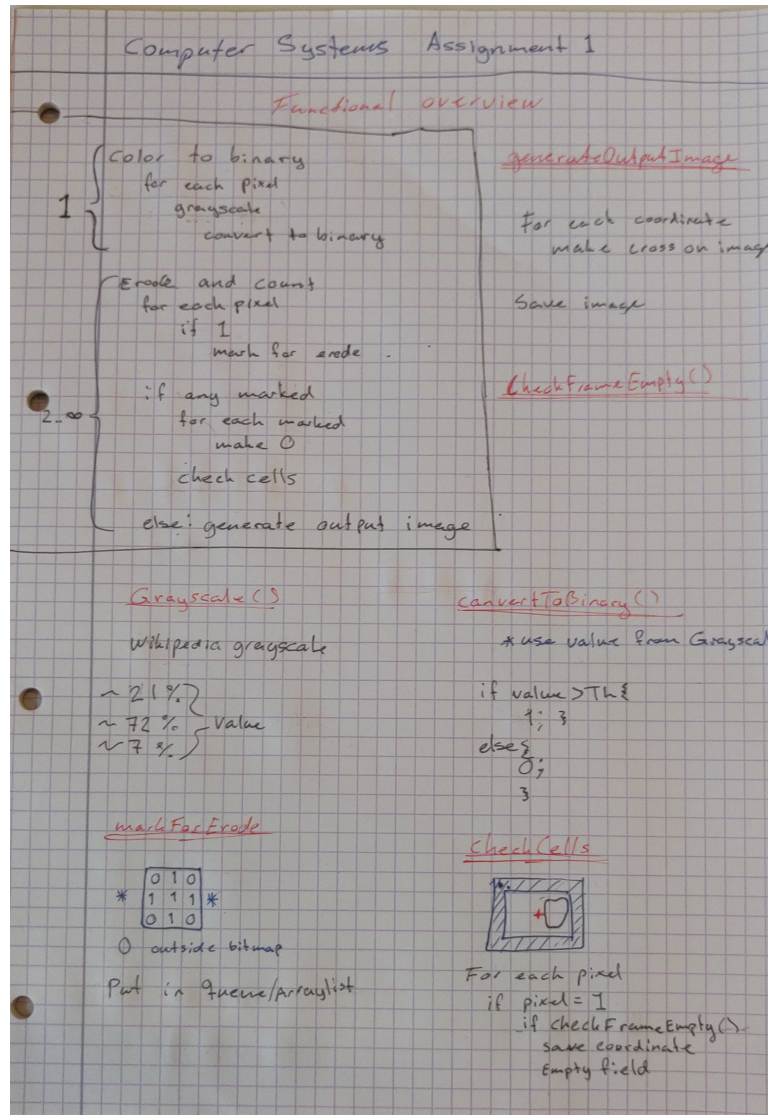 Computer Systems Assignment 1
Functional overview
1
Color to binary
for each pixel
grayscale
convert to binary
2..∞
Erode and count
for each pixel
if 1
mark for erode
if any marked
for each marked
make 0
check cells
else: generate output image
generateOutputImage
For each coordinate
make cross on image
Save image
CheckFrameEmpty()
Grayscale()
Wikipedia grayscale
~ 21%
~ 72% Value
~ 7%
convertToBinary()
* use value from Grayscal
if value >Th{
1; }
else{
0;
}
markForErode
0 1 0
* 1 1 1 *
0 1 0
0 outside bitmap
Put in queue/Arraylist
CheckCells
+
For each pixel
if pixel = 1
if checkFrameEmpty()
save coordinate
Empty field